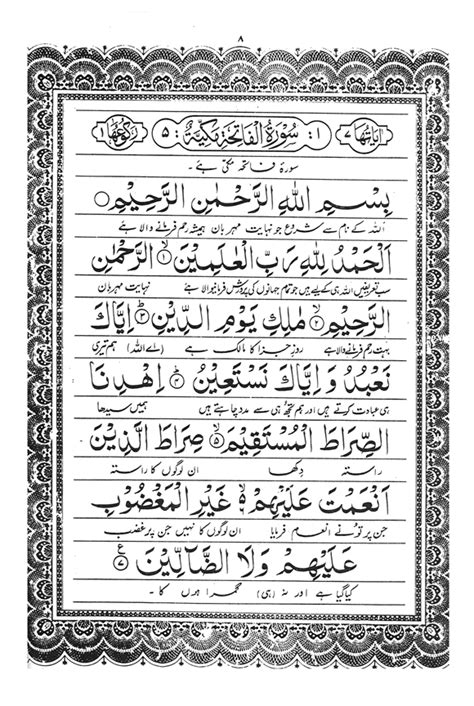 ٨
اٰیاتُھَا ٧ ١: سُوْرَةُ الْفَاتِحَةِ مَكِّيَّةٌ : ٥ رُكُوْعُهَا ١
سورۂ فاتحہ مکّی ہے۔
بِسْمِ اللهِ الرَّحْمٰنِ الرَّحِيْمِ
اللہ کے نام سے شروع جو نہایت مہربان ہمیشہ رحم فرمانے والا ہے
اَلْحَمْدُ لِلّٰهِ رَبِّ الْعٰلَمِيْنَ ١ الرَّحْمٰنِ
سب تعریفیں اللہ ہی کے لیے ہیں جو تمام جہانوں کی پرورش فرمانیوالا ہے نہایت مہربان
الرَّحِيْمِ ٢ مٰلِكِ يَوْمِ الدِّيْنِ ٣ اِيَّاكَ
بہت رحم فرمانے والا ہے روزِ جزا کا مالک ہے (اے اللہ) ہم تیری
نَعْبُدُ وَ اِيَّاكَ نَسْتَعِيْنُ ٤ اِهْدِنَا
ہی عبادت کرتے ہیں اور ہم تجھ ہی سے مدد چاہتے ہیں ہمیں سیدھا
الصِّرَاطَ الْمُسْتَقِيْمَ ٥ صِرَاطَ الَّذِيْنَ
راستہ دکھا ان لوگوں کا راستہ
اَنْعَمْتَ عَلَيْهِمْ ٦ غَيْرِ الْمَغْضُوْبِ
جن پر تُو نے انعام فرمایا ان لوگوں کا نہیں جن پر غضب
عَلَيْهِمْ وَلَا الضَّآلِّيْنَ ٧ ع
کیا گیا ہے اور نہ (ہی) گمراہوں کا۔